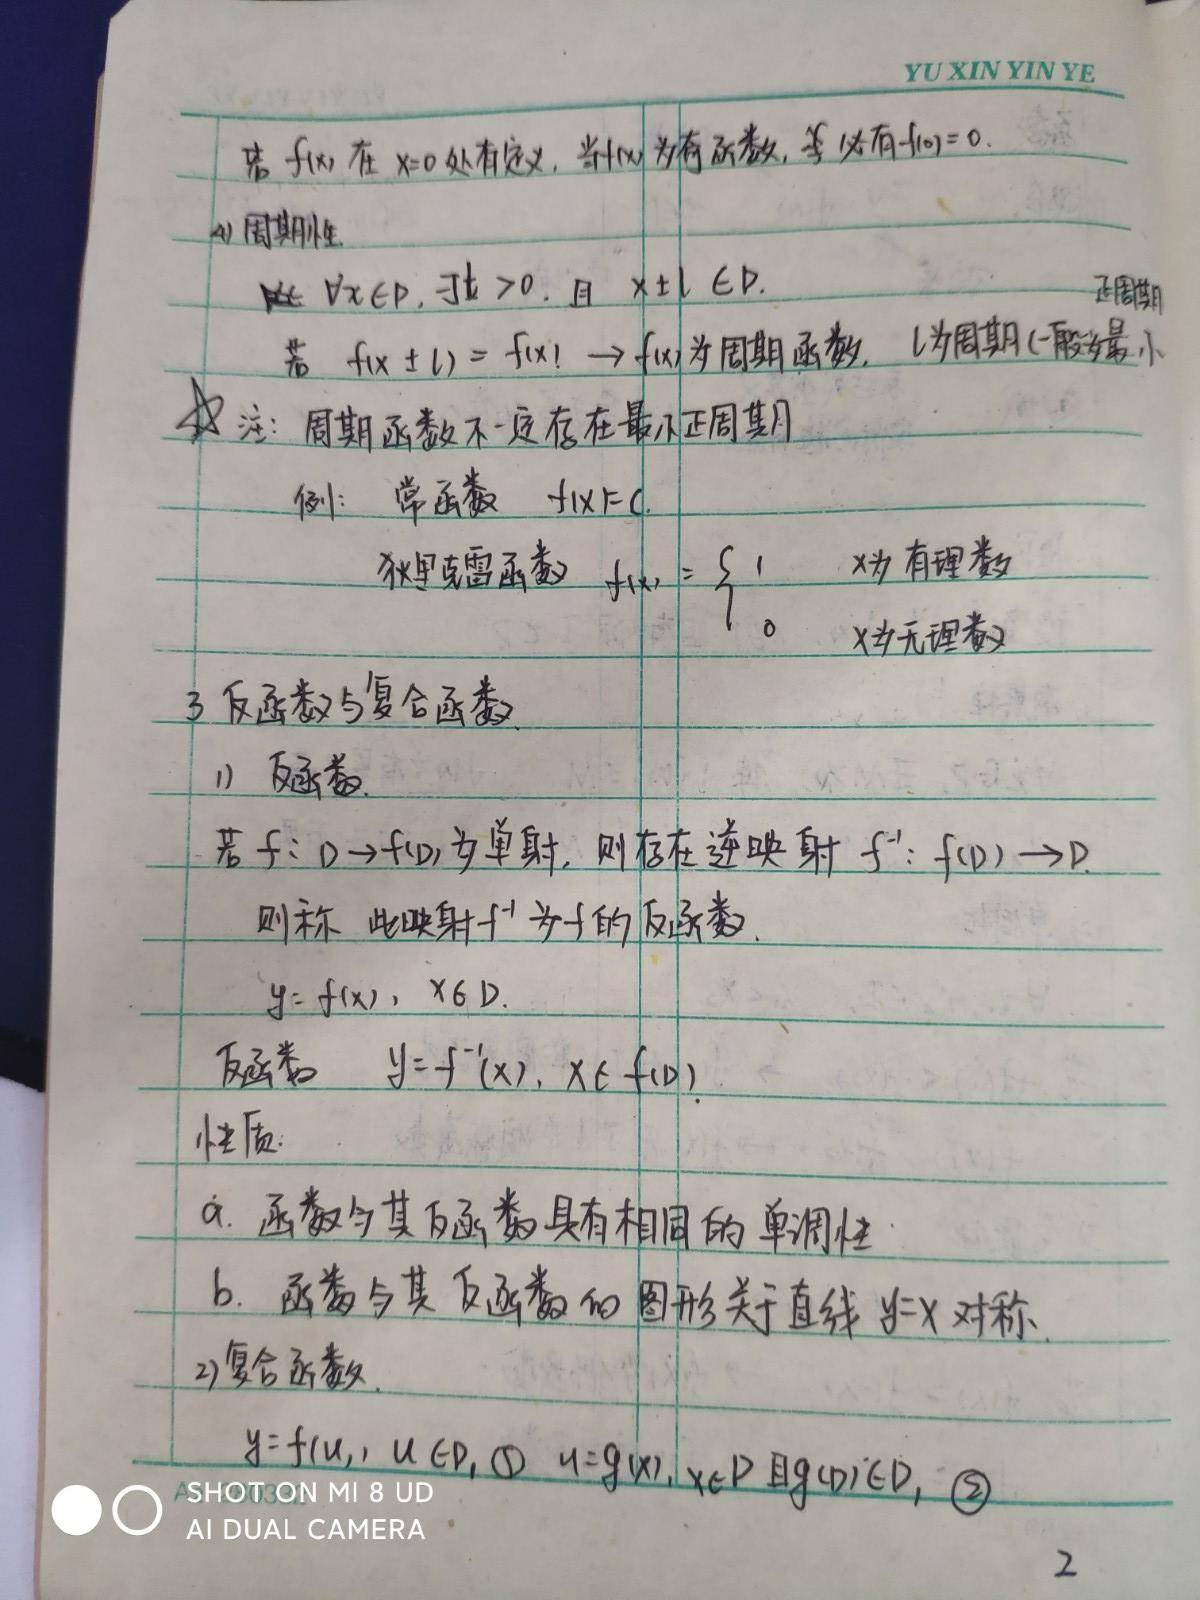 YU XIN YIN YE
若 f(x) 在 x=0 处有定义, 当f(x)为有函数, 必有f(0)=0.
4) 周期性.
∀x∈D, ∃l >0. 且 x±l ∈D.
正周期
若 f(x ± l) = f(x) → f(x)为周期函数. l为周期(一般为最小
注: 周期函数不一定存在最小正周期
例: 常函数 f(x)=C.
狄里克雷函数 f(x) = { 1 x为有理数
0 x为无理数
3 反函数与复合函数.
1) 反函数.
若 f: D→f(D)为单射, 则存在逆映射 f⁻¹: f(D) →D.
则称 此映射f⁻¹为f的反函数.
y= f(x), x∈D.
反函数 y=f⁻¹(x), x∈ f(D).
性质:
a. 函数与其反函数具有相同的单调性.
b. 函数与其反函数的图形关于直线 y=x 对称.
2) 复合函数.
y=f(u), u∈D₁ ① u=g(x), x∈D 且g(D)∈D₁ ②
SHOT ON MI 8 UD
AI DUAL CAMERA
2